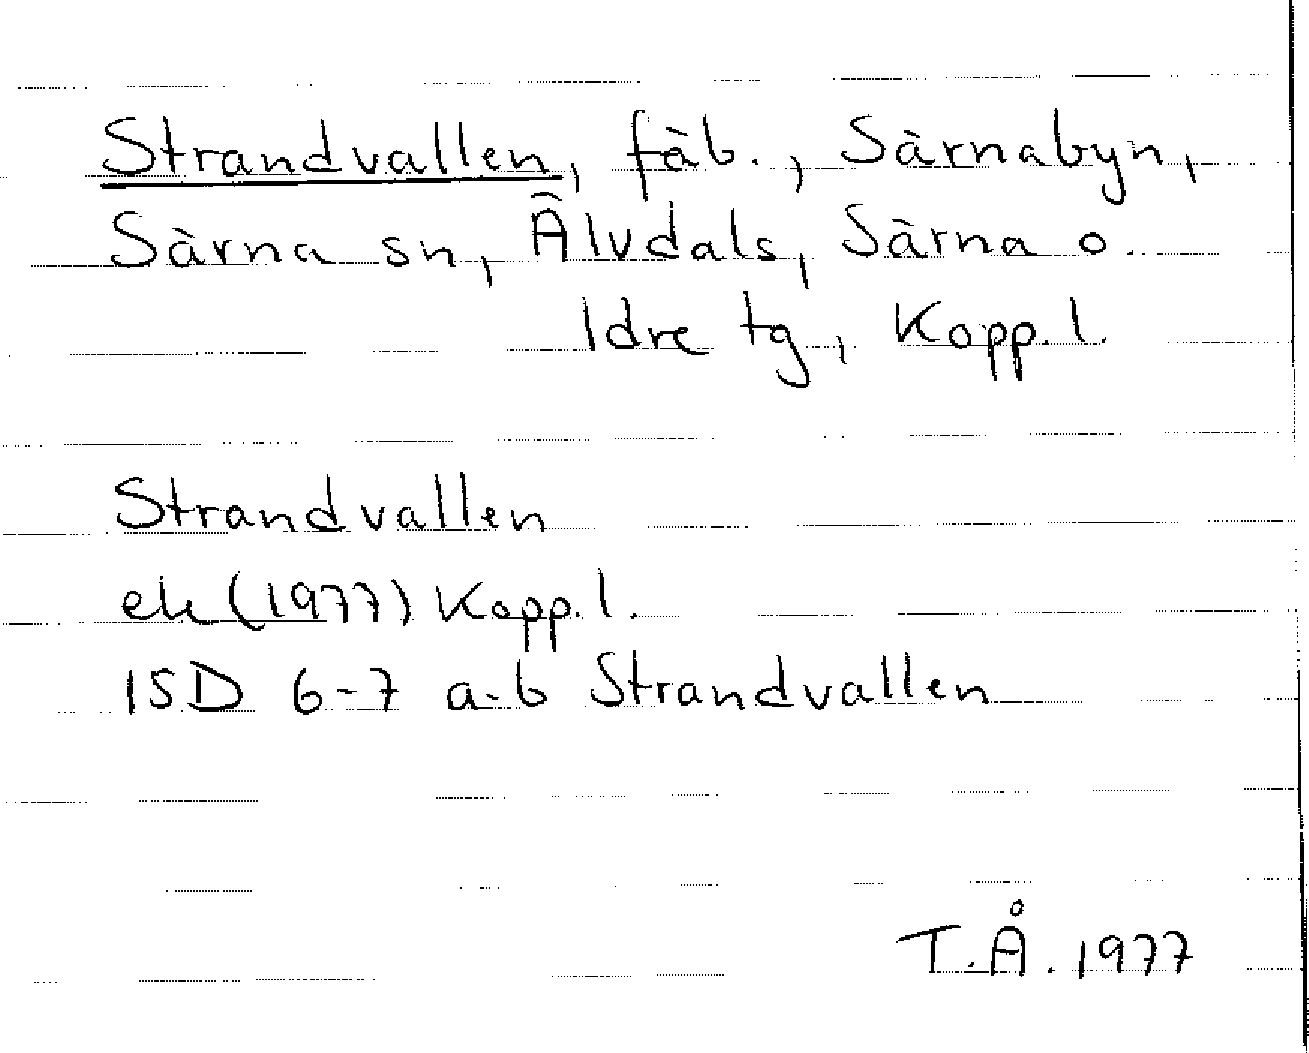 Strandvallen, fäb., Särnabyn,
Särna sn, Älvdals, Särna o.
Idre tg, Kopp. l.
Strandvallen
ek (1977) Kopp. l.
15D 6-7 a-b Strandvallen
T.Å. 1977